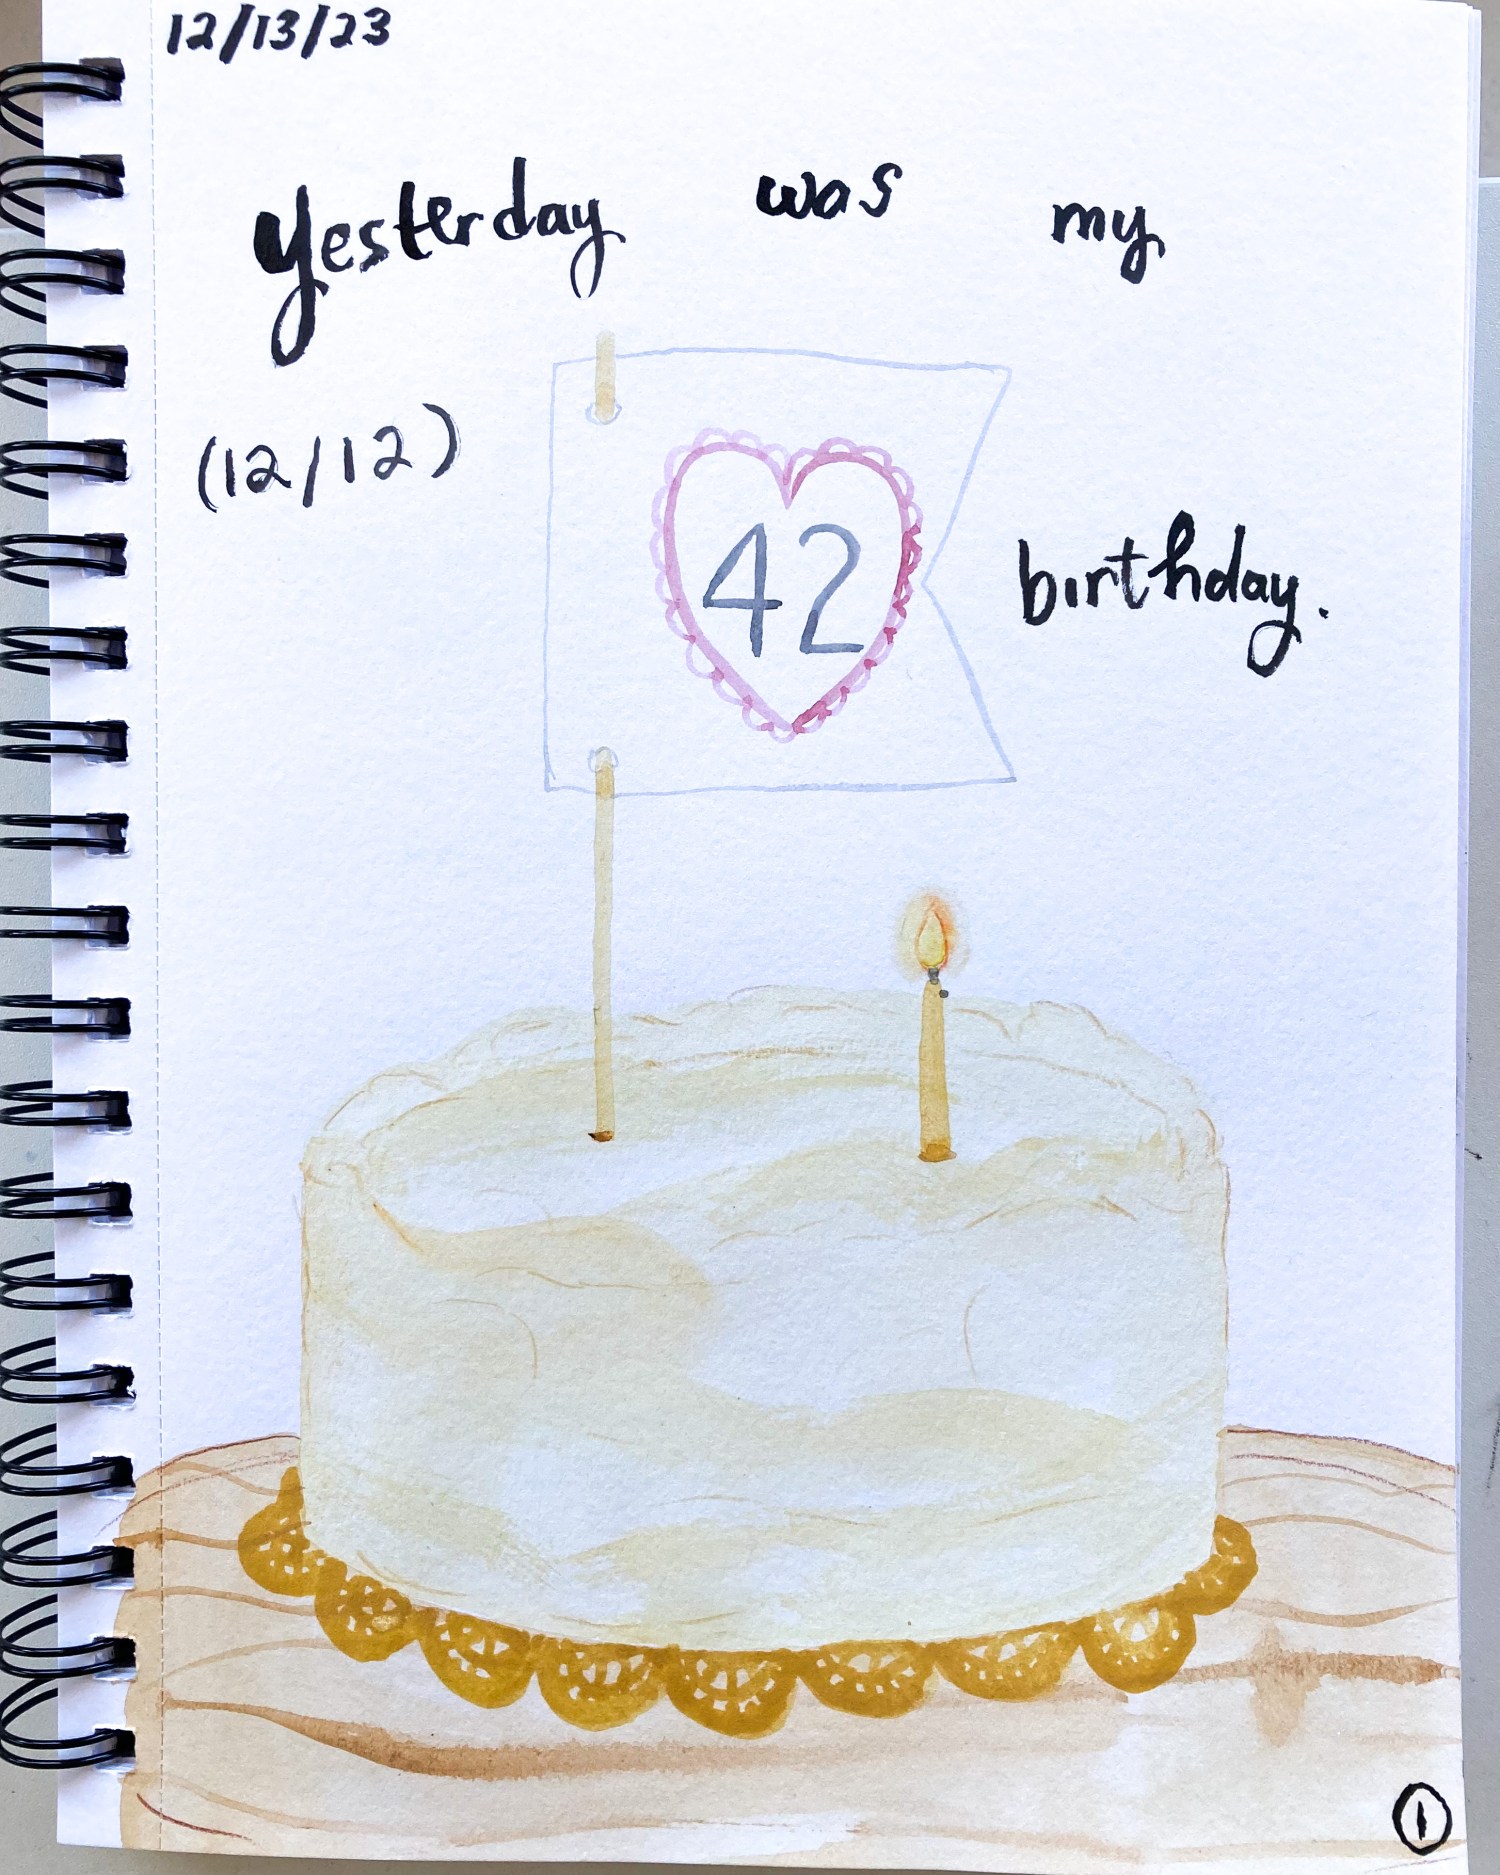 12/13/23
Yesterday was my
(12/12)
42
birthday.
1